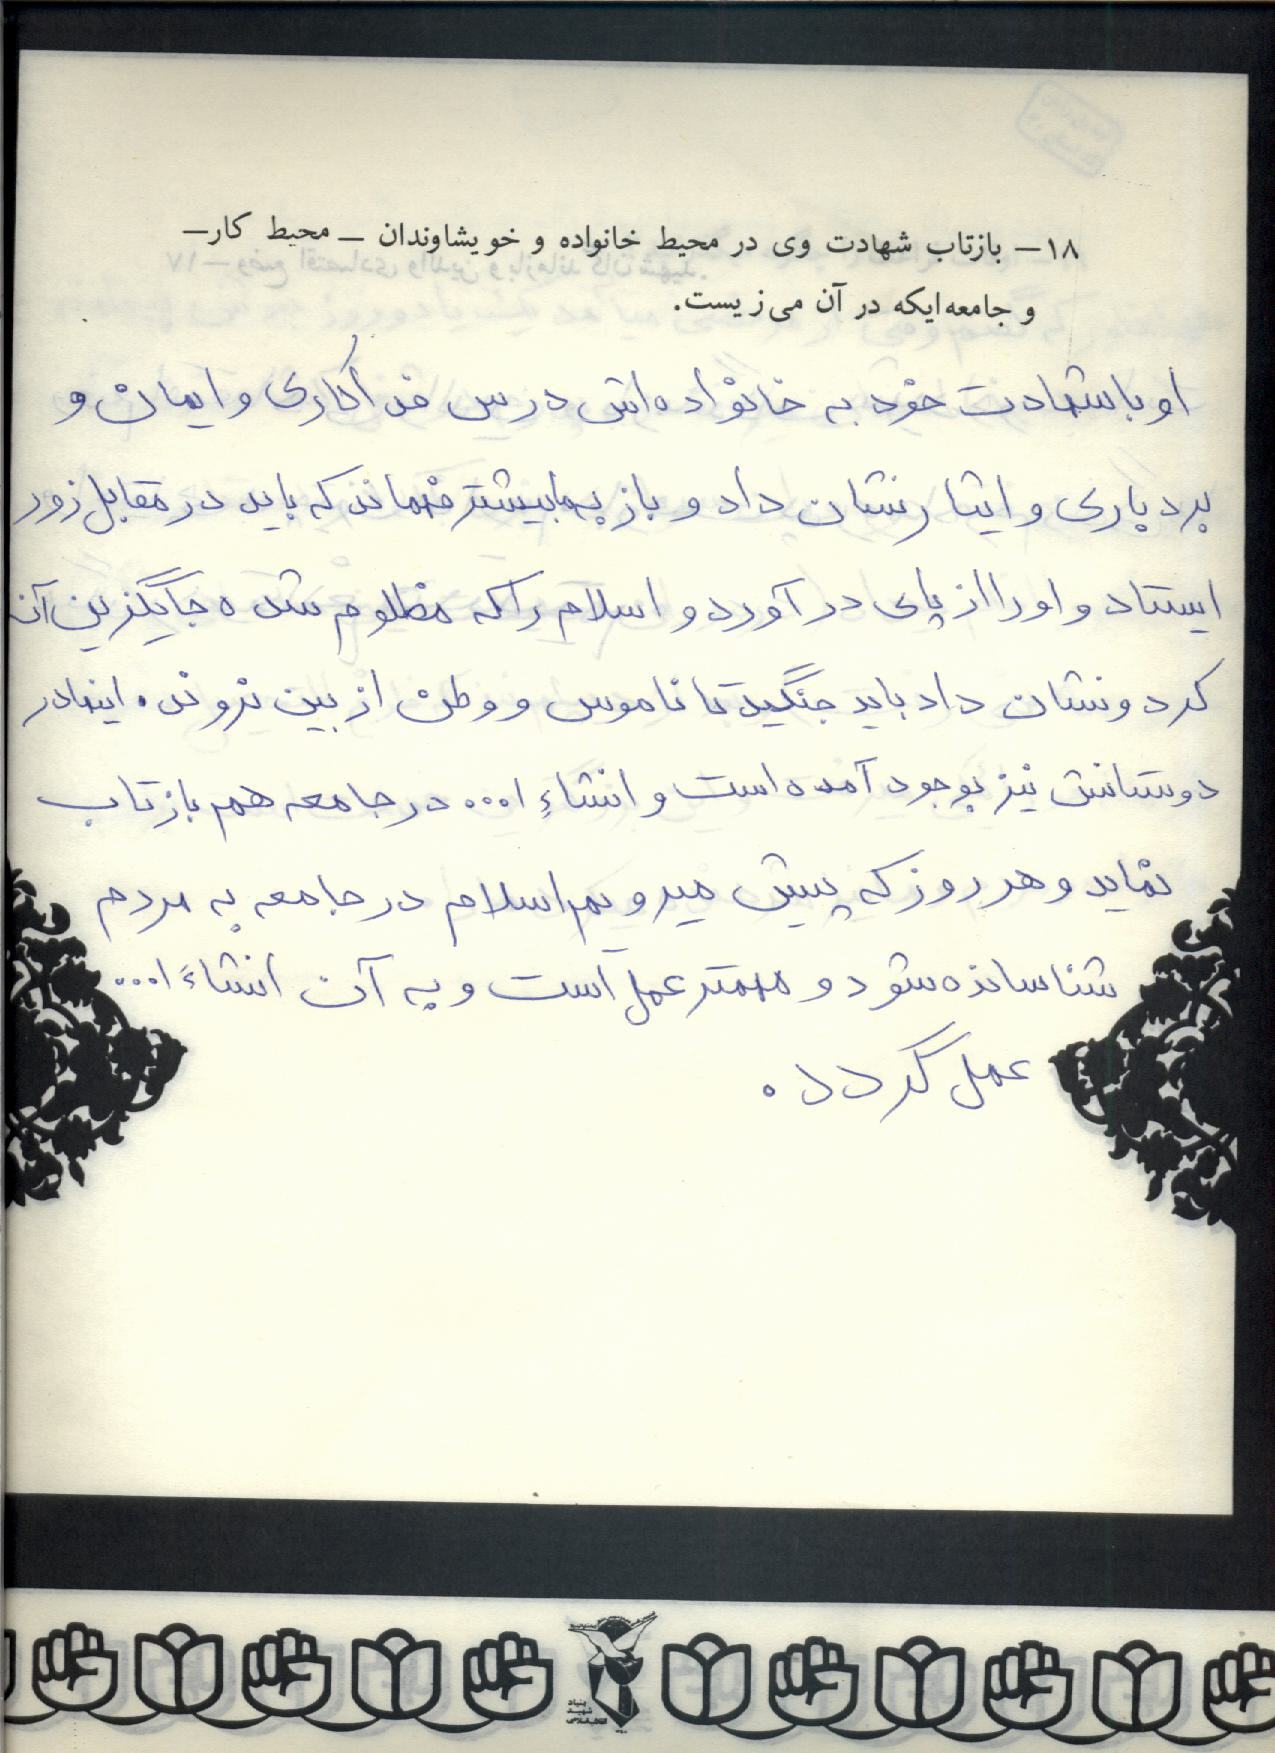 ۱۸— بازتاب شهادت وی در محیط خانواده و خویشاوندان — محیط کار—
و جامعه‌ایکه در آن می‌زیست.
او با شهادت خود به خانواده‌اش درس فداکاری و ایمان و
بردباری و ایثار نشان داد و باز به ما بیشتر فهماند که باید در مقابل زور
ایستاد و او را از پای در آورد و اسلام را که مظلوم شده جایگزین آن
کرد و نشان داد باید جنگید تا ناموس و وطن از بین نروند. اینها در
دوستانش نیز بوجود آمده است و انشاءِ ا... در جامعه هم بازتاب
نماید و هر روز که پیش میرویم اسلام در جامعه به مردم
شناسانده شود و مهمتر عمل است و به آن انشاءَ ا...
عمل گردد.
بنیاد
شهید
انقلاب اسلامی